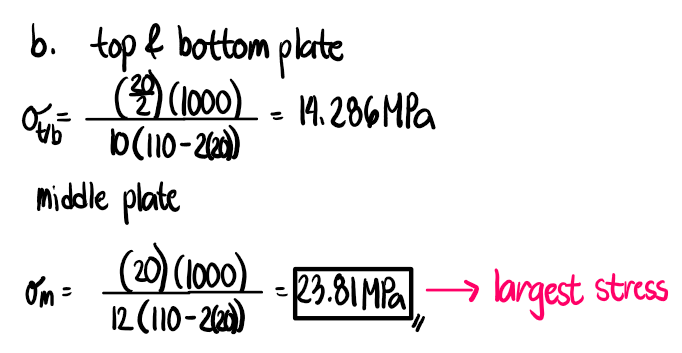 b. top & bottom plate
σt/b = (20/2)(1000) / 10(110-2(20)) = 14.286 MPa
middle plate
σm = (20)(1000) / 12(110-2(20)) = 23.81 MPa → largest stress